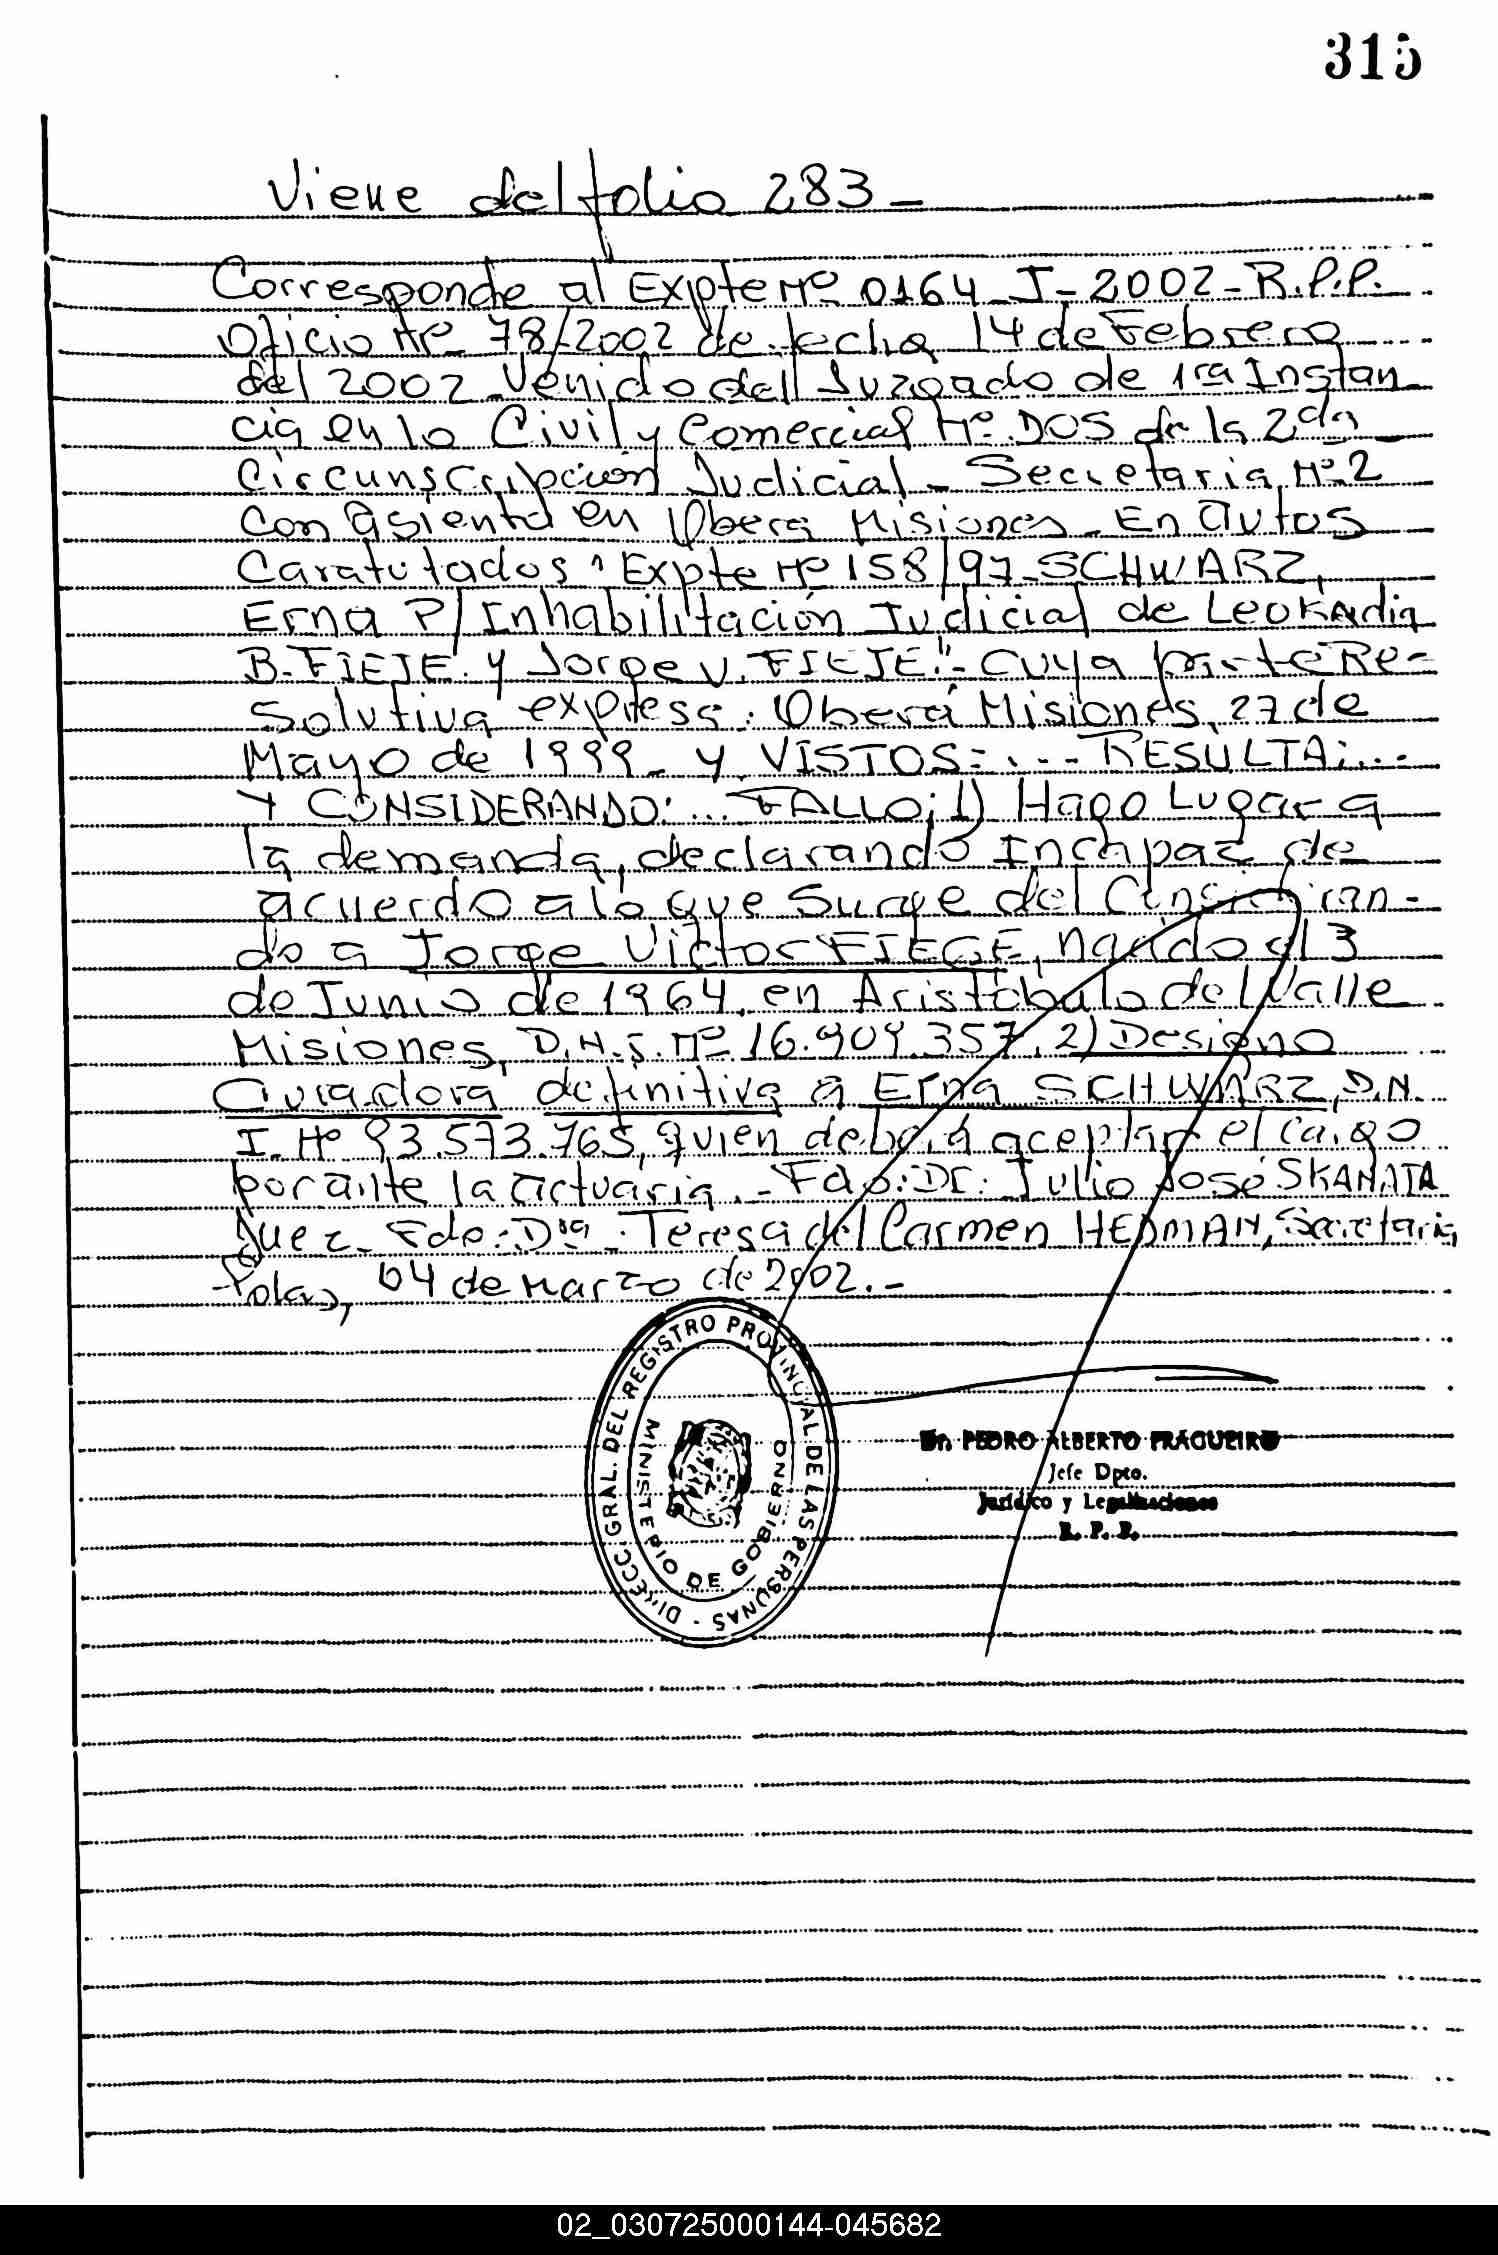 315
Viene del folio 283-
Corresponde al Expte Nº 0164-J-2002-R.P.P.
Oficio Nº 78/2002 de fecha 14 de Febrero
del 2002 Venido del Juzgado de 1ra Instan
cia en lo Civil y Comercial Nº DOS de la 2da
Circunscripción Judicial - Secretaria Nº 2
Con asiento en Oberá Misiones - En autos
Caratulados "Expte Nº 158/97 - SCHWARZ,
Erna P/ Inhabilitación Judicial de Leokadia
B. FIEJE y Jorge V. FIEJE" - Cuya parte Re-
Solutiva expresa: Oberá Misiones, 27 de
Mayo de 1999 - y VISTOS: ... RESULTA: ...
Y CONSIDERANDO: ... FALLO: 1) Hago Lugar a
la demanda, declarando Incapaz de
acuerdo a lo que Surge del Considran-
do a Jorge Victor FIEGE, nacido el 3
de Junio de 1964, en Aristóbulo del Valle
Misiones, D.N.I. Nº 16.909.357, 2) Designo
Curadora definitiva a Erna SCHWARZ, D.N.
I. Nº 93.573.765, quien deberá aceptar el Cargo
por ante la actuaria. - Fdo: Dr: Julio José SKANATA
Juez - Fdo: Dra. Teresa del Carmen HEDMAN, Secretaria
Pdas, 04 de Marzo de 2002.-
DIRECC. GRAL. DEL REGISTRO PROVINCIAL DE LAS PERSONAS -
MINISTERIO DE GOBIERNO
Dr. PEDRO ALBERTO FRAGUEIRO
Jefe Dpto.
Jurídico y Legalizaciones
R. P. P.
02_030725000144-045682